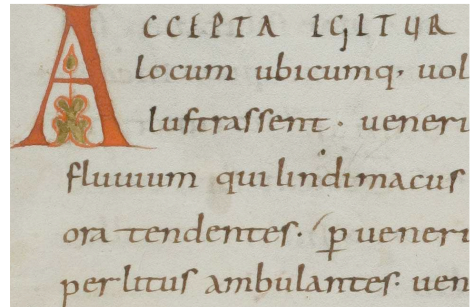 ACCEPTA IGITUR
locum ubicumq· uol
luſtraſſent · ueneri
fluuium qui lindimacus
ora tendentes · p ueneri
per litus ambulantes · uen